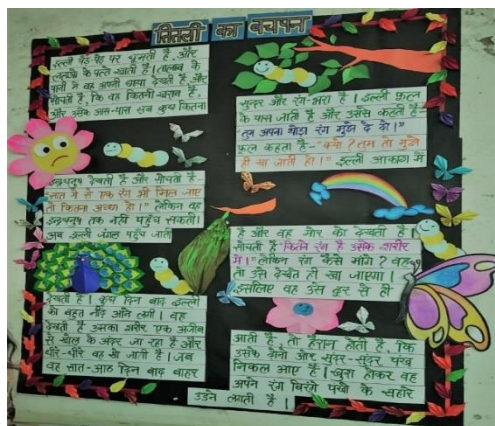 तितली का बचपन
इल्ली पेड़-पेड़ पर घूमती है, और
के पत्ते खाती है। तालाब के
पानी में वह अपनी छाया देखती है, और
सोचती है, कि वह कितनी खराब है,
और उसके आस-पास सब कुछ कितना
सुन्दर और रंग-भरा है। इल्ली फूल
के पास जाती है और उससे कहती है-
"तुम अपना थोड़ा रंग मुझे दे दो।"
फूल कहता है- "क्यों? तुम तो मुझे
ही खा जाती हो।" इल्ली आकाश में
इन्द्रधनुष देखती है और सोचती है-
"सात में से एक रंग भी मिल जाए
तो कितना अच्छा हो।" लेकिन वह
इन्द्रधनुष तक नहीं पहुँच सकती।
अब इल्ली जंगल पहुँच जाती
है और वह मोर को देखती है।
सोचती है कितने रंग है उसके शरीर
में।" लेकिन रंग कैसे मांगे? वह
तो उसे देखते ही खा जाएगा।
इसलिए वह उसे दूर से ही
देखती है। कुछ दिन बाद इल्ली
को बहुत नींद आने लगी। वह
देखती है, उसका शरीर एक अजीब
से खोल के अंदर जा रहा है और
धीरे-धीरे वह सो जाती है। जब
वह सात-आठ दिन बाद बाहर
आती है, तो हैरान होती है, कि
उसके दोनों ओर सुन्दर-सुन्दर पंख
निकल आए हैं। खुश होकर वह
अपने रंग बिरंगे पंखों के सहारे
उड़ने लगती है।